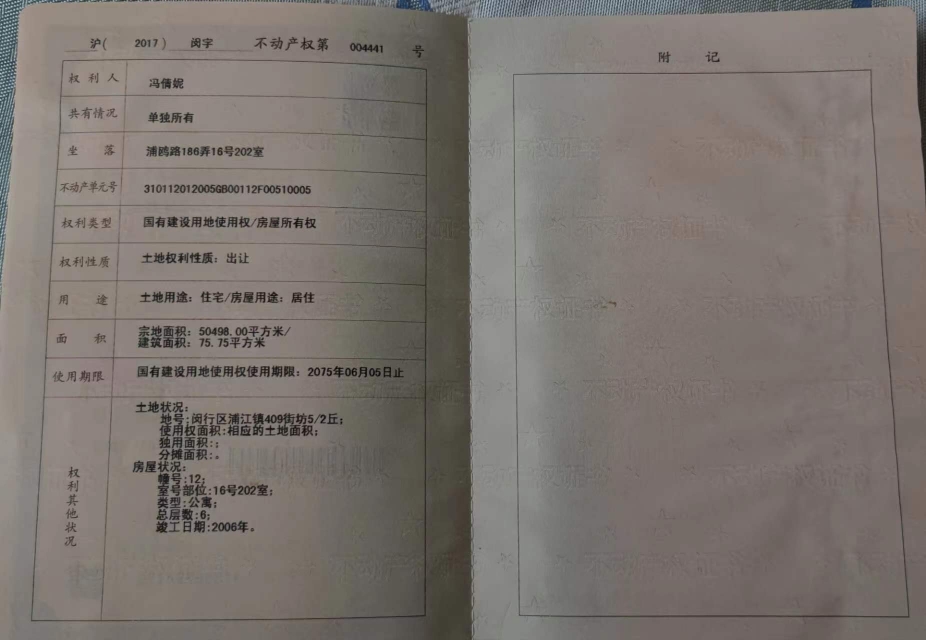 沪( 2017 ) 闵字 不动产权第 004441 号
权利人 冯倩妮
共有情况 单独所有
坐落 浦鸥路186弄16号202室
不动产单元号 310112012005GB00112F00510005
权利类型 国有建设用地使用权/房屋所有权
权利性质 土地权利性质：出让
用途 土地用途：住宅/房屋用途：居住
面积 宗地面积：50498.00平方米/
建筑面积：75.75平方米
使用期限 国有建设用地使用权使用期限：2075年06月05日止
权利其他状况
土地状况：
地号:闵行区浦江镇409街坊5/2丘;
使用权面积:相应的土地面积;
独用面积:;
分摊面积:。
房屋状况：
幢号:12;
室号部位:16号202室;
类型:公寓;
总层数:6;
竣工日期:2006年。
附记